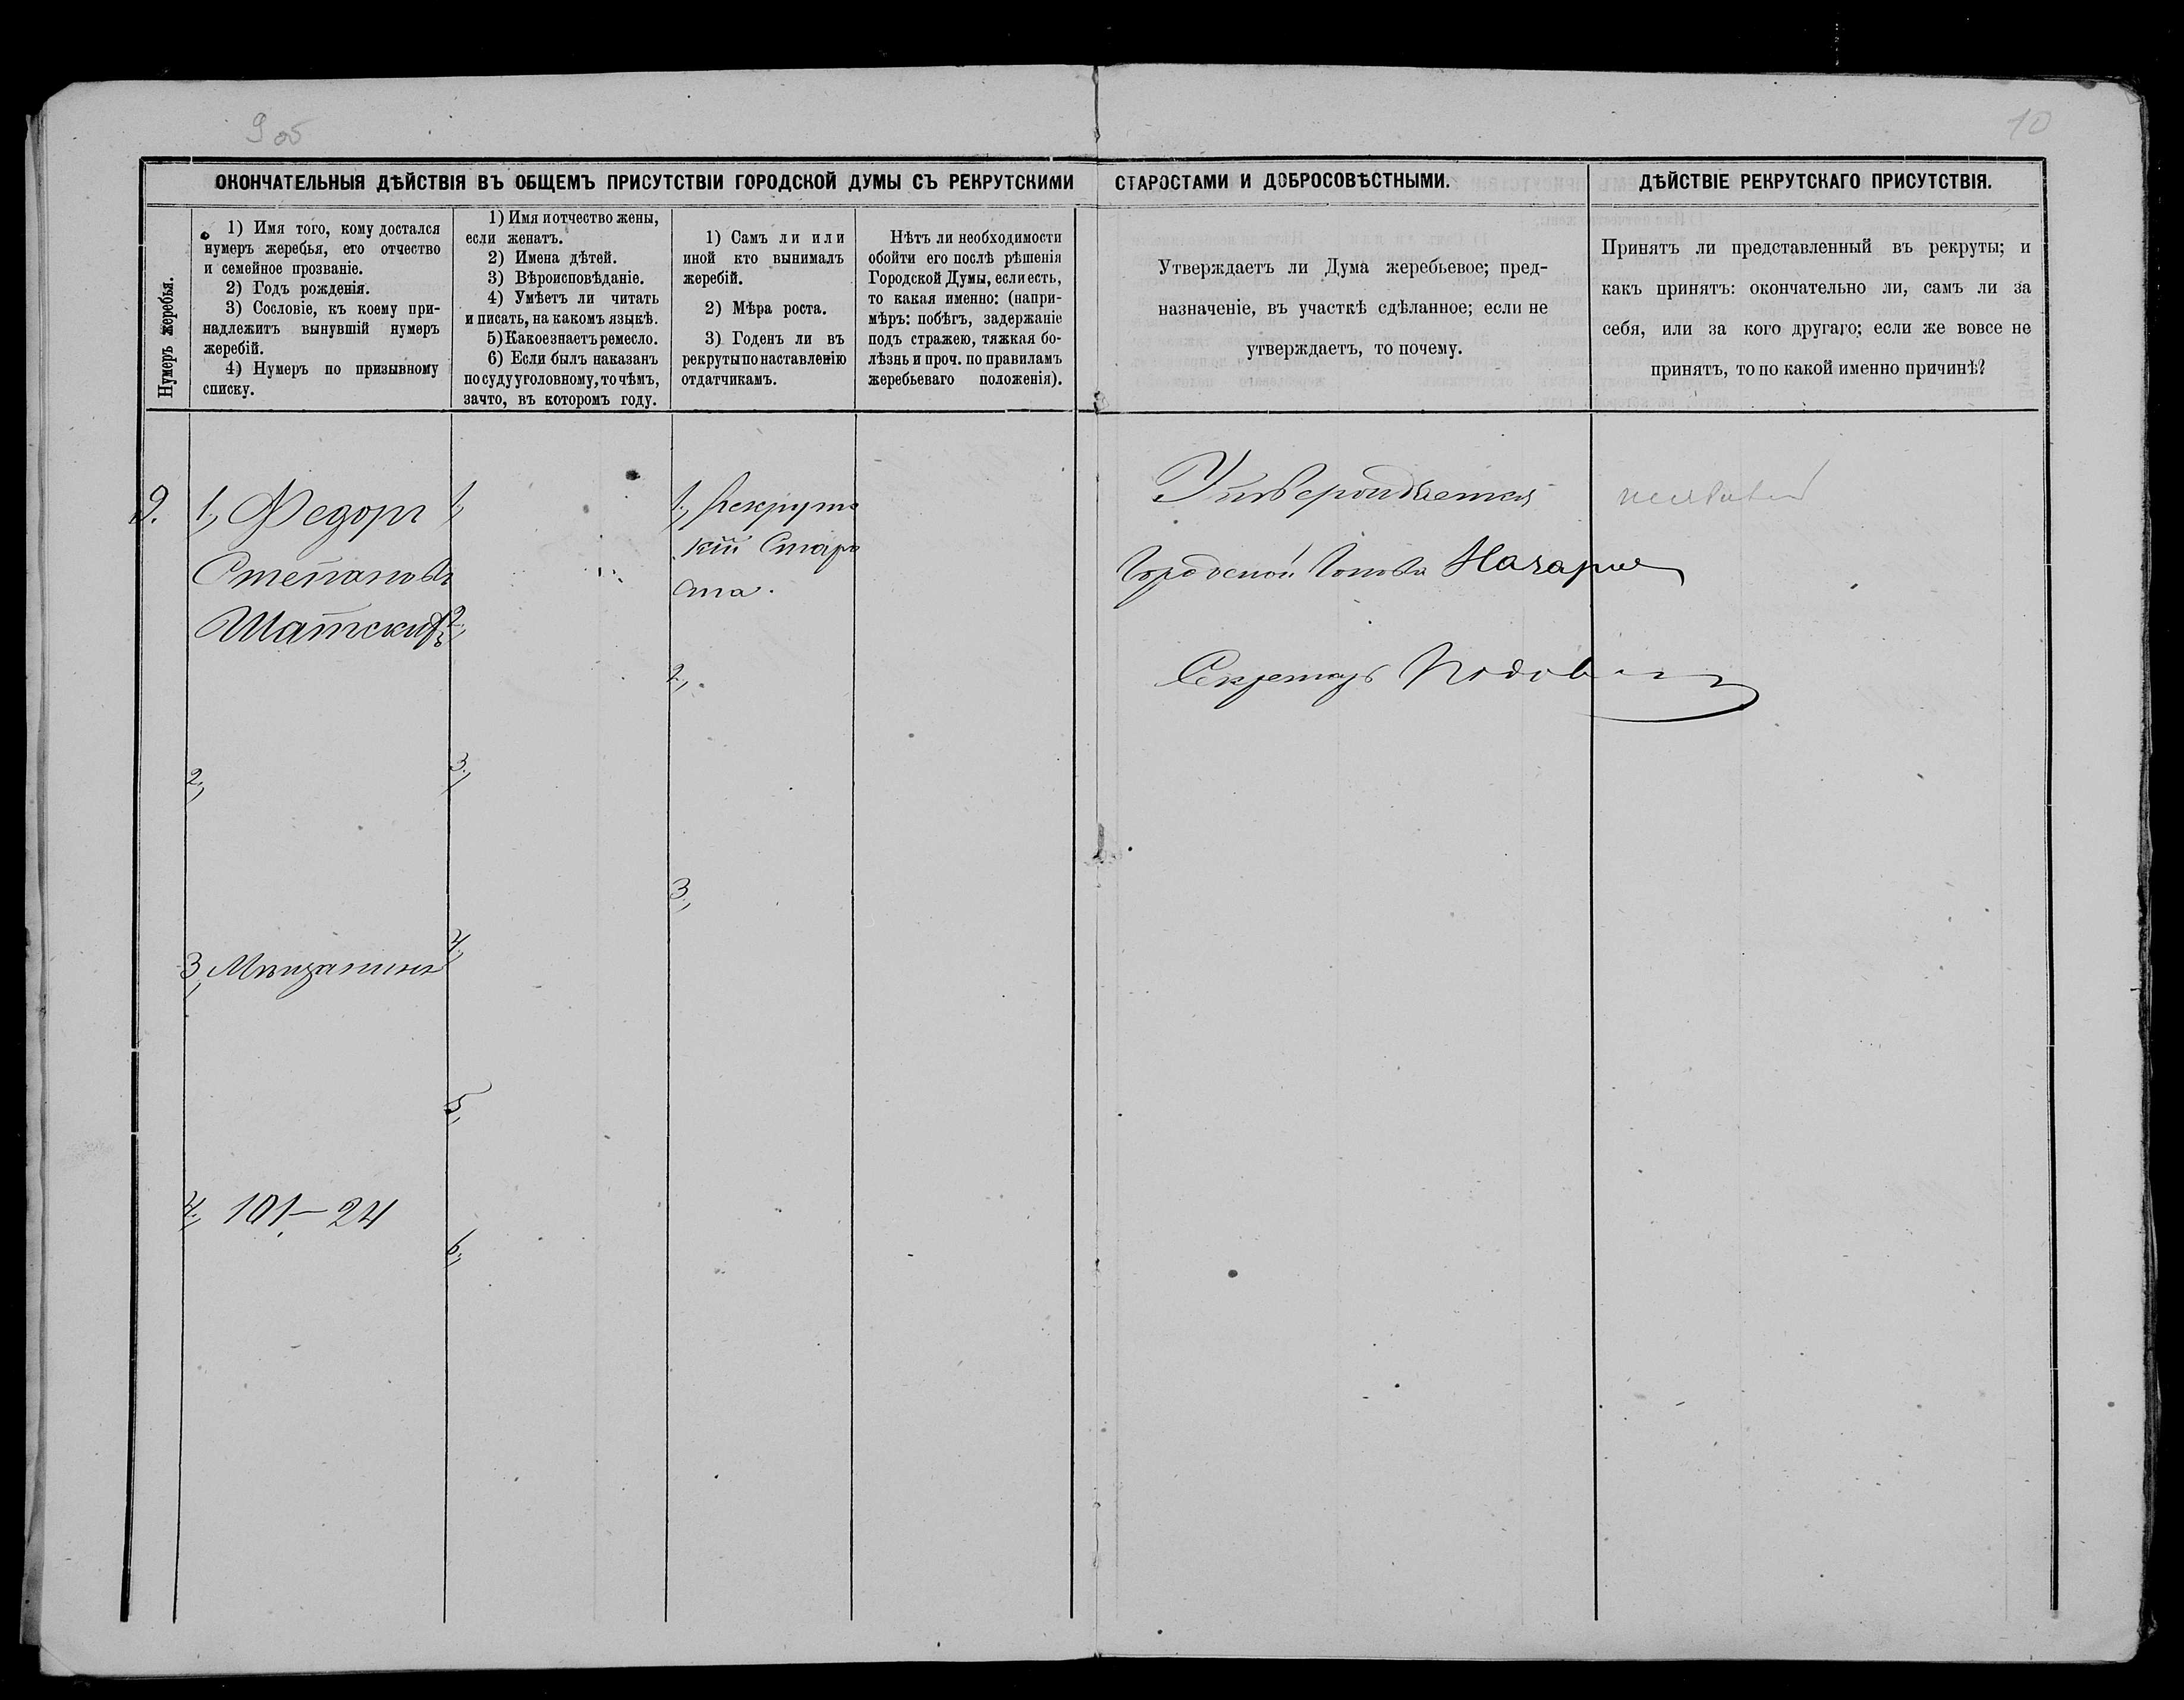 9 об
10
ОКОНЧАТЕЛЬНЫЯ ДѢЙСТВІЯ ВЪ ОБЩЕМЪ ПРИСУТСТВІИ ГОРОДСКОЙ ДУМЫ СЪ РЕКРУТСКИМИ СТАРОСТАМИ И ДОБРОСОВѢСТНЫМИ.
ДѢЙСТВІЕ РЕКРУТСКАГО ПРИСУТСТВІЯ.
Нумеръ жеребья.
1) Имя того, кому достался
нумеръ жеребья, его отчество
и семейное прозваніе.
2) Годъ рожденія.
3) Сословіе, къ коему при-
надлежитъ вынувшій нумеръ
жеребій.
4) Нумеръ по призывному
списку.
1) Имя и отчество жены,
если женатъ.
2) Имена дѣтей.
3) Вѣроисповѣданіе.
4) Умѣетъ ли читать
и писать, на какомъ языкѣ.
5) Какое знаетъ ремесло.
6) Если былъ наказанъ
по суду уголовному, то чѣмъ,
за что, въ которомъ году.
1) Самъ ли или
иной кто вынималъ
жеребій.
2) Мѣра роста.
3) Годенъ ли въ
рекруты по наставленію
отдатчикамъ.
Нѣтъ ли необходимости
обойти его послѣ рѣшенія
Городской Думы, если есть,
то какая именно: (напри-
мѣръ: побѣгъ, задержаніе
подъ стражею, тяжкая бо-
лѣзнь и проч. по правиламъ
жеребьеваго положенія).
Утверждаетъ ли Дума жеребьевое; пред-
назначеніе, въ участкѣ сдѣланное; если не
утверждаетъ, то почему.
Принятъ ли представленный въ рекруты; и
какъ принятъ: окончательно ли, самъ ли за
себя, или за кого другаго; если же вовсе не
принятъ, то по какой именно причинѣ?
9.
1, Федоръ
Степановъ
Шатскихъ
2,
3, Мѣщанинъ
4, 101 — 24
1,
2,
3,
4,
5,
6,
1, Рекрутс
кій Старо
ста.
2,
3,
Утверждается
Городской Голова
Секретарь